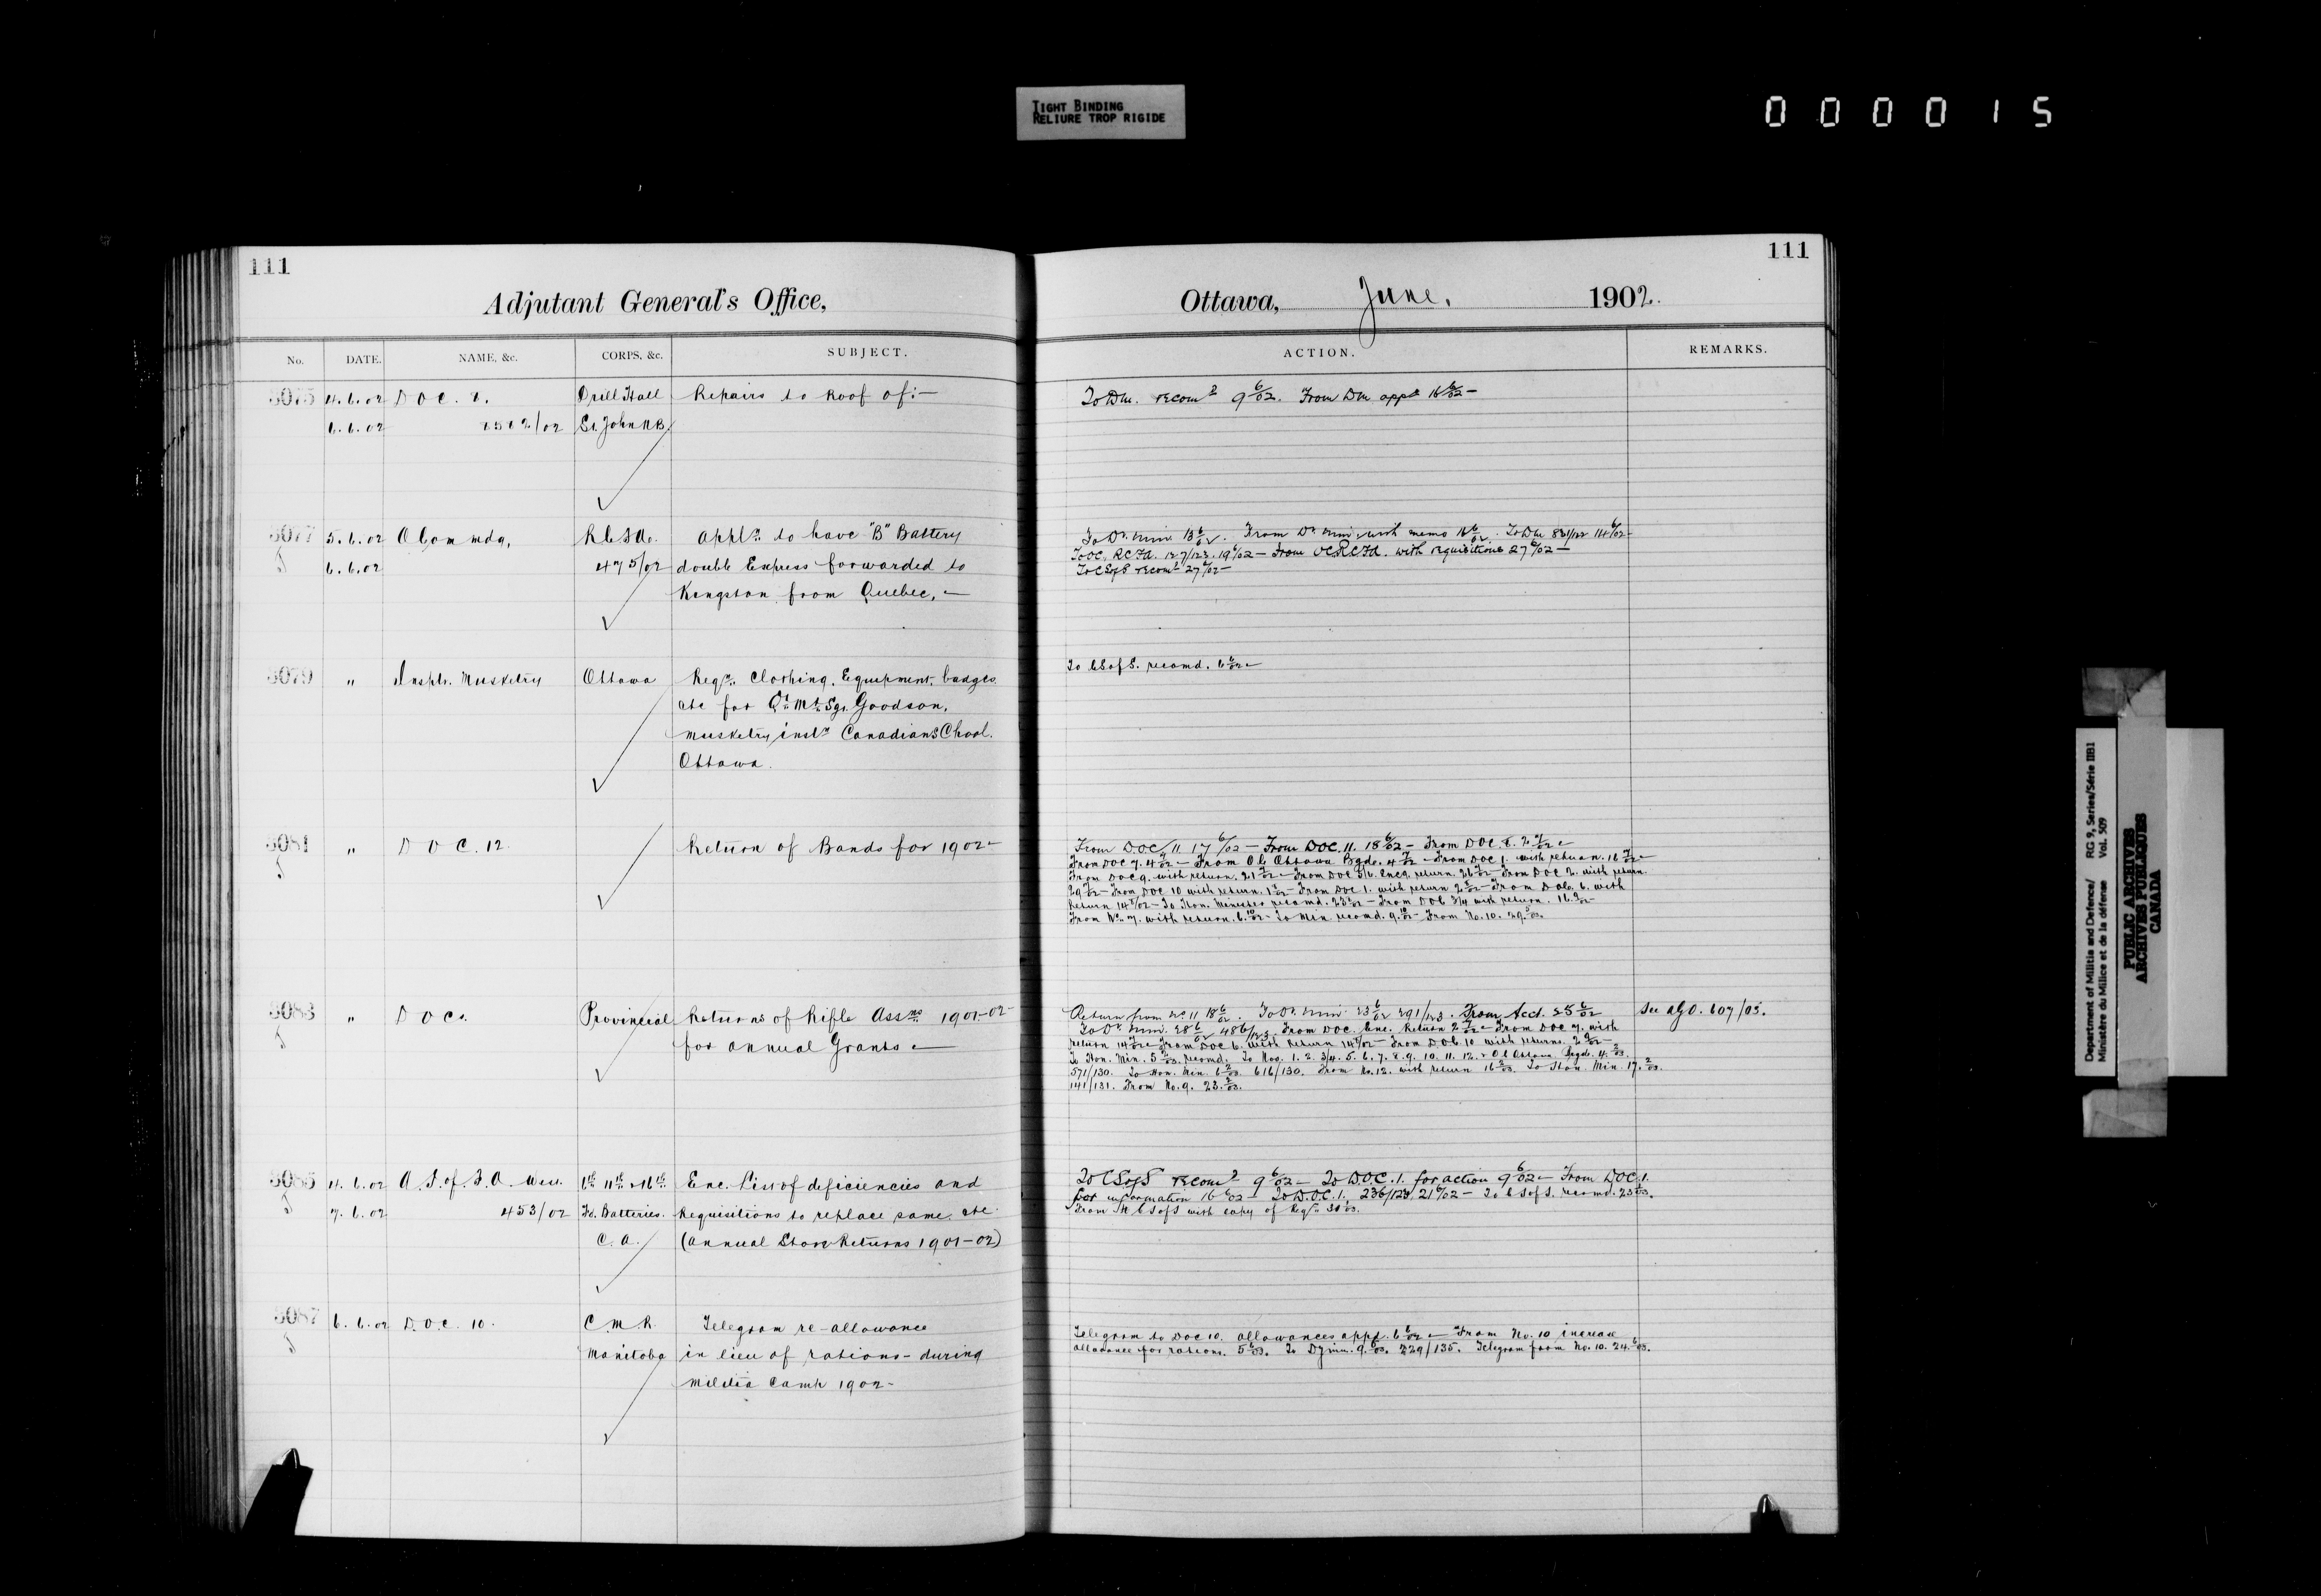 TIGHT BINDING
RELIURE TROP RIGIDE
000015
111
Adjutant General's Office,
No. DATE. NAME, &c. CORPS, &c. SUBJECT.
5075 4.6.02 D O C. 8. Drill Hall Repairs to Roof of:—
6.6.02 St. John N.B.
5077 5.6.02 O Commdg, R C F A. Appln. to have "B" Battery
6.6.02 475/02 double Express forwarded to
Kingston from Quebec, —
5079 " Inspr. Musketry Ottawa Reqn. Clothing, Equipment, badges
etc for Qr. Mr. Sgt. Goodson,
Musketry instr Canadian School.
Ottawa.
5081 " D O C. 12. Return of Bands for 1902—
5083 " D O Cs. Provincial Returns of Rifle Assns 1901-02-
for annual Grants —
5085 4.6.02 A. I. of F. A. West. 6th 11th & 16th Enc. List of deficiencies and
7.6.02 453/02 Fd. Batteries. Requisitions to replace same. etc.
C. A. (Annual Store Returns 1901-02)
5087 6.6.02 D.O.C. 10. C. M. R. Telegram re-allowance
Manitoba in lieu of rations - during
Militia Camp 1902-
111
Ottawa, June, 1902.
ACTION. REMARKS.
To DM. recomd 9 6/02. From DM appd 16 6/02 —
To Dr. Min 13 6/02. From Dr. Min with memo To DM 831/122 14 6/02 -
To OC. RCFA. 127/123. 19 6/02 — From OCRCFA. with requisitions 27 6/02 —
To CSofS recomd 27 6/02 —
To CSofS. recomd. 6 6/02 —
From DOC 11 17 6/02 — From DOC. 11. 18 6/02 — From DOC. 8. 2 7/02 —
From DOC 7. 4 7/02 — From OC Ottawa Bgde. 4 7/02 — From DOC 1. with return. 16 7/02 —
From DOC 9. with return. 21 7/02 — From DOC 5/6. Encg. return. 26 7/02 — From DOC 2. with return.
29 7/02 — From DOC 10 with return. 1 8/02 — From DOC 1. with return 2 8/02 — From DOC. 6. with
Return 14 8/02 — To Hon. Minister recomd. 23 8/02 — From DOC 3/4 with return. 16 9/02 —
From No. 7. with return. 6 10/02 — To Min recomd. 9 10/02 — From No. 10. 29
Return from No 11 18 6/02. To Dr. Min. 23 6/02 291/123. From Acct. 25 6/02 See AGO. 607/03.
To Dr. Min. 28 6/02 486/123. From DOC. Enc. Return 2 7/02 — From DOC 7. with
return 14 7/02 — From DOC 6. with return 14 8/02 — From DOC 10 with returns. 2 9/02 —
To Hon. Min. 5 2/03. recomd. To Nos. 1. 2. 3/4. 5. 6. 7. 8. 9. 10. 11. 12. & OC Ottawa Bgde. 4 2/03.
571/130. To Hon. Min. 6 2/03. 616/130. From No. 12. with return 16 2/03. To Hon. Min. 17 2/03.
141/131. From No. 9. 23 2/03.
To CSofS recomd 9 6/02 — To D.O.C. 1. for action 9 6/02 — From DOC 1.
for information 16 6/02 — To D.O.C. 1. 236/123 21 6/02 — To CSofS. recomd. 23
From CSofS with copy of Reqn.
Telegram to DOC 10. allowances appd. 6 6/02 — From No. 10 increase
allowance for rations. 5 6/03. To Dy Min. 9 6/03. 229/135. Telegram from No. 10. 24 6/03.
Department of Militia and Defence/ RG 9, Series/Série IIB1
Ministère du Milice et de la défense Vol. 509
PUBLIC ARCHIVES
ARCHIVES PUBLIQUES
CANADA